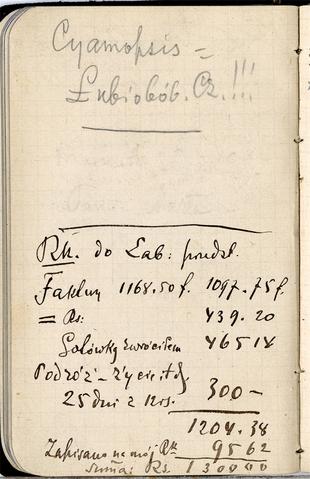 Cyamopsis =
Łubiobób. Cz.!!!
Rk. do Lab:
Faktury 1168.50 f. 1097.75 f.
= Rs: 439.20
Gotówką zwróciłem 465 18
Podróż – życie, itd.
25 dni z 12 rs. 300 –
1204.38
Zapisano na mój Rk 95 62
Suma: Rs 1300 00